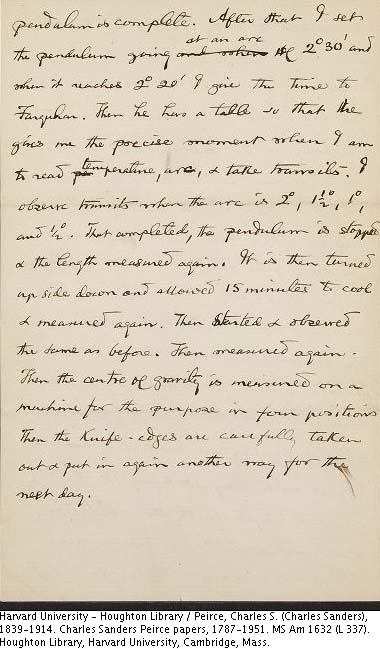 pendulum is complete. After that I set
at an arc
the pendulum going and when of 2° 30' and
when it reaches 2° 20' I give the time to
Farquhar. Then he has a table so that he
gives me the precise moment when I am
to read pe temperature, arc, & take transits. I
observe transits when the arc is 2°, 1½°, 1°,
and ½°. That completed, the pendulum is stopped
& the length measured again. It is then turned
up side down and allowed 15 minutes to cool
& measured again. Then started & observed
the same as before. Then measured again.
Then the centre of gravity is measured on a
machine for the purpose in four positions
Then the Knife-edges are carefully taken
out & put in again another way for the
next day.
Harvard University - Houghton Library / Peirce, Charles S. (Charles Sanders),
1839-1914. Charles Sanders Peirce papers, 1787-1951. MS Am 1632 (L 337).
Houghton Library, Harvard University, Cambridge, Mass.